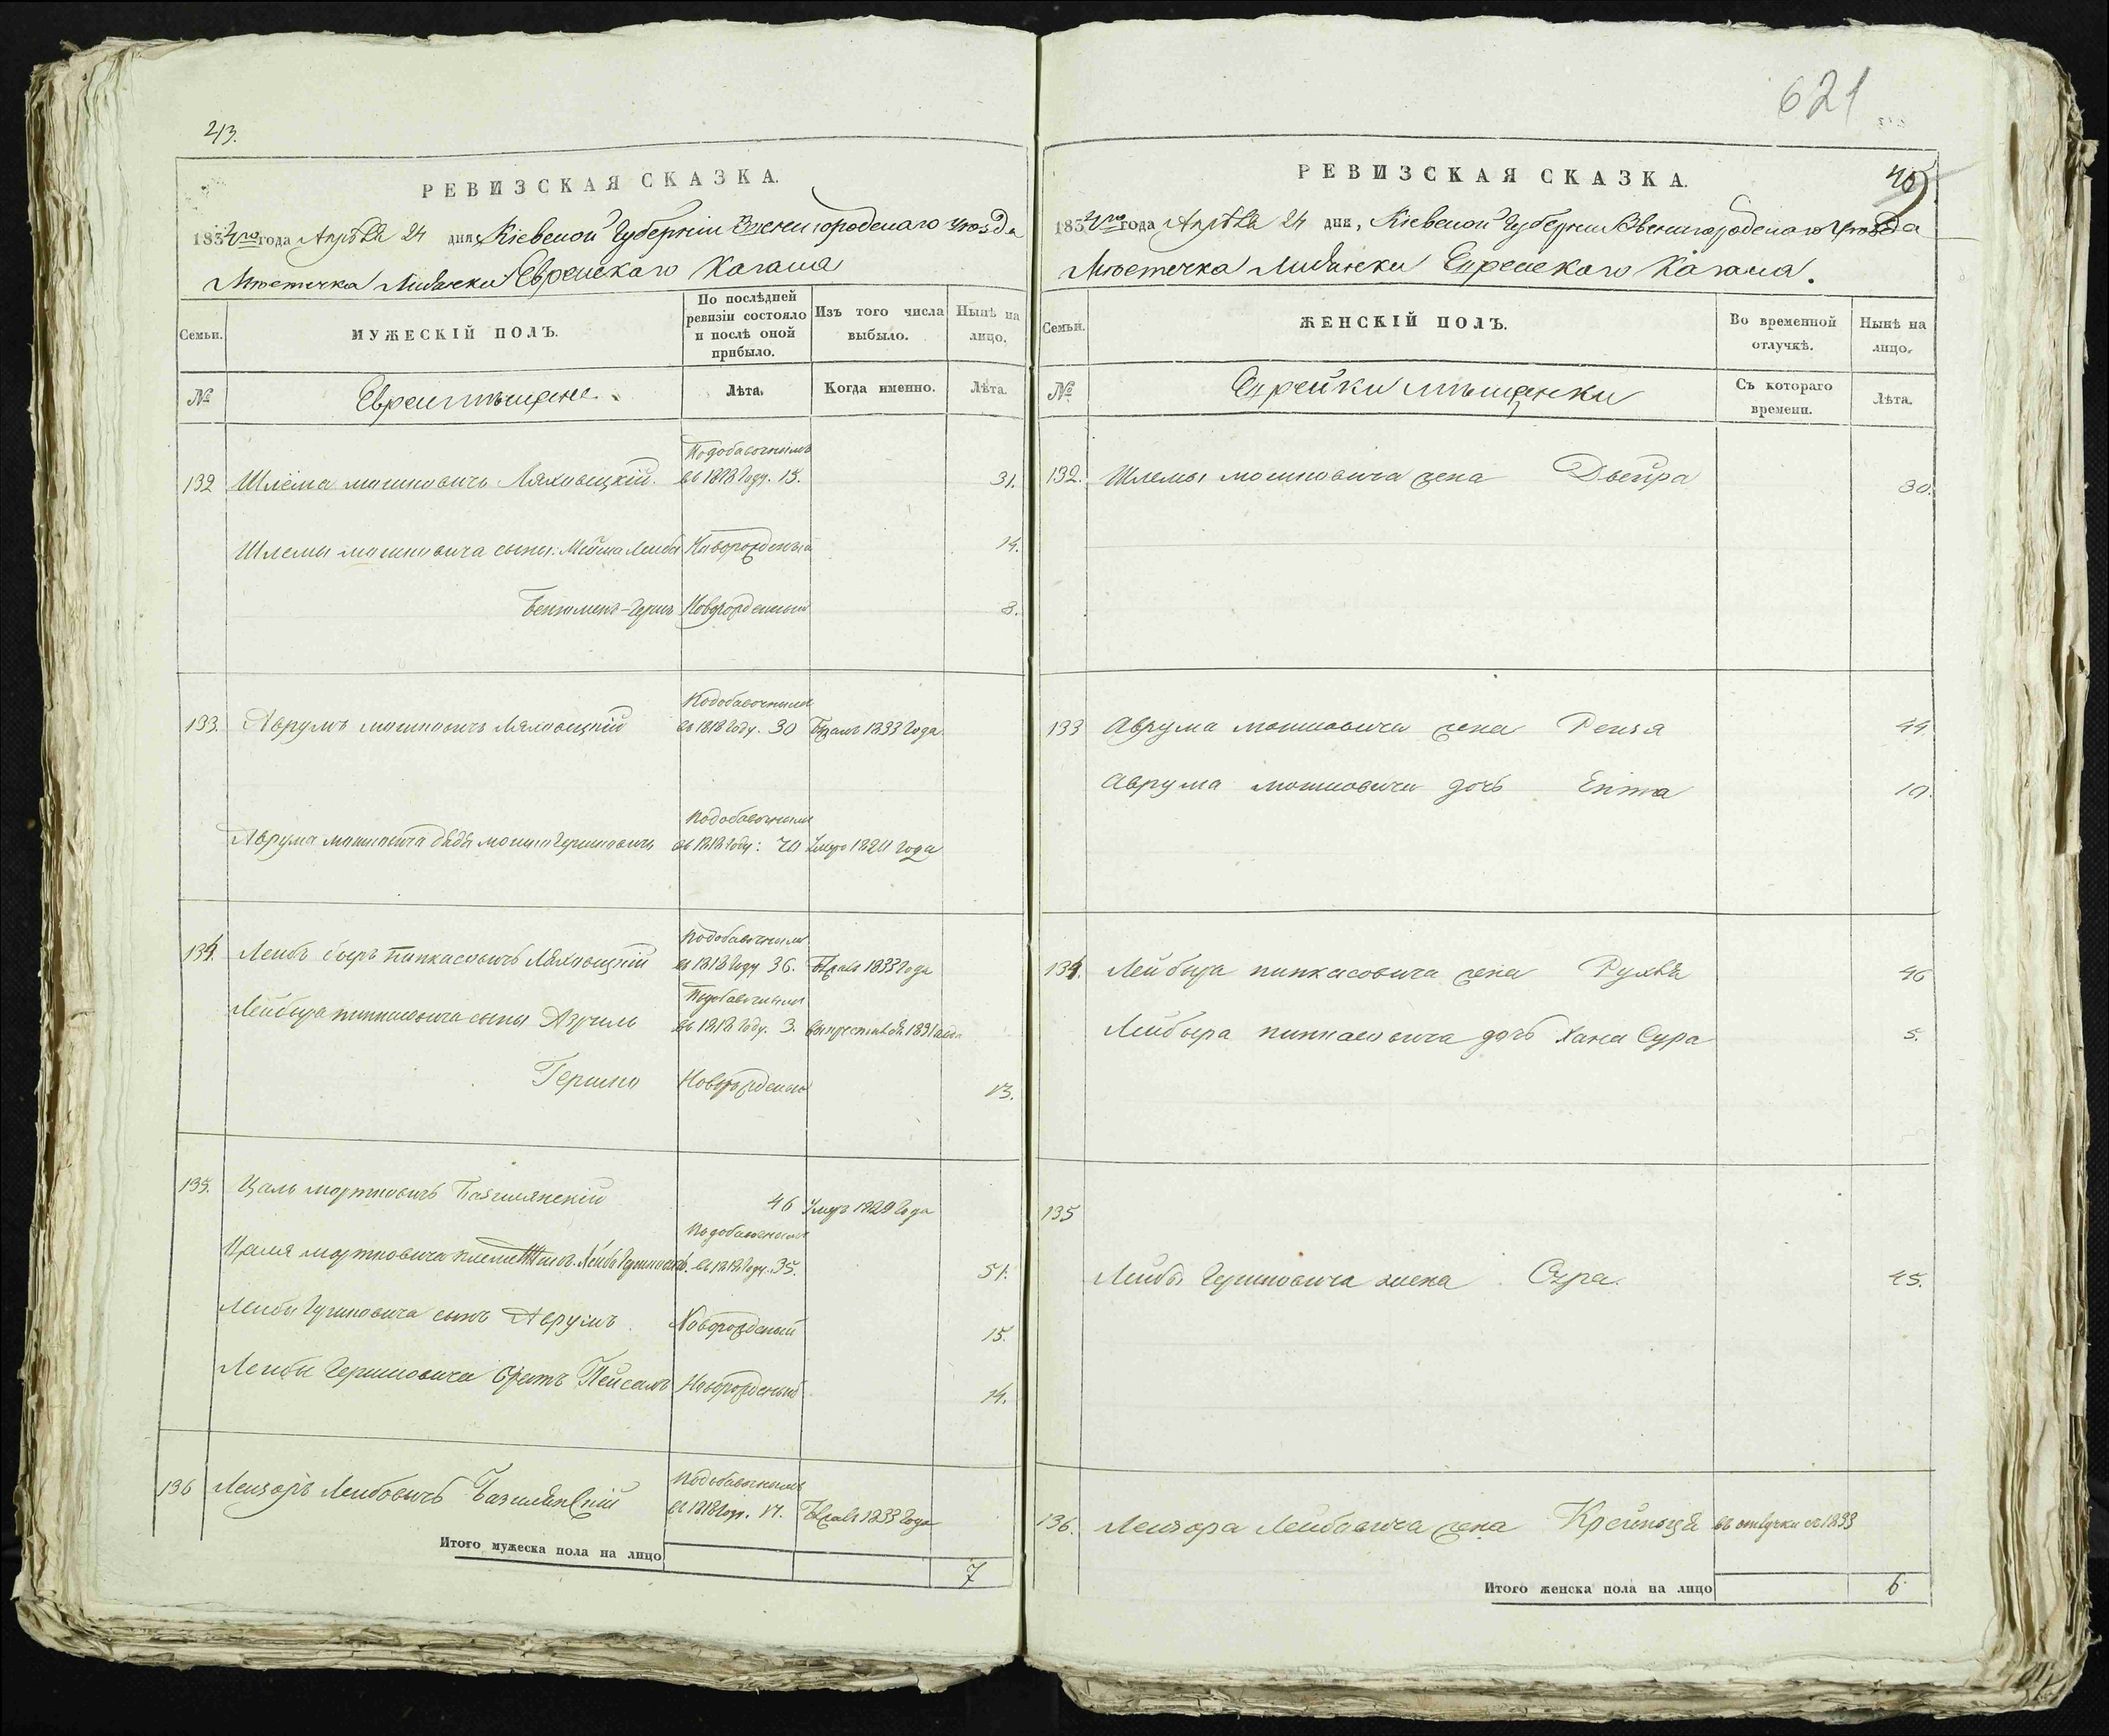 213.
РЕВИЗСКАЯ СКАЗКА.
1834го года Апрѣля 24 дня, Кіевской Губерніи Звенигородскаго Уѣзда
Мѣстечка Лисянки Еврейскаго Кагала
Семьи.
МУЖЕСКІЙ ПОЛЪ.
По послѣдней ревизіи состояло и послѣ оной прибыло.
Изъ того числа выбыло.
Нынѣ на лицо.
№
Евреи мѣщане
Лѣта.
Когда именно.
Лѣта.
По добавочнымъ
132 Шлёма мошковичъ Ляховицкій. въ 1818 году. 15. 31.
Шлемы мошковича сыны: Лейба Новорожденъ 14.
Гершъ Новорожденный 8.
По добавочнымъ
133. Аврумъ мошковичъ Ляховицкій въ 1818 году. 30 Бѣжалъ 1833 года.
По добавочнымъ
Аврума мошковича дядя мошко Гершковичъ въ 1818 году: 70 Умеръ 1820 года
По добавочнымъ
134. Лейбъ беръ Пинкасовичъ Ляховицкій въ 1818 году 36. Бѣжалъ 1833 года
По добавочнымъ
Лейбера пинкасовича сыны Азриль въ 1818 году. 3. 1831 года
Гершко Новорожденый 13.
135. Цаль мортковичъ Базилянскій 46 Умеръ 1829 года
По добавочнымъ
Цаля мортковича племянникъ Лейба Гершковичъ. въ 1818 году. 35. 51.
Лейбы Гершковича сынъ Аврумъ Новорожденый 15.
Лейбы Гершковича братъ Пейсахъ Новорожденый 14.
По добавочнымъ
136 Лейзоръ Лейбовичъ Базилянскій въ 1818 году. 17. Бѣжалъ 1833 года
Итого мужеска пола на лицо 7
621
РЕВИЗСКАЯ СКАЗКА.
1834го года Апрѣля 24 дня, Кіевской Губерніи Звенигородскаго Уѣзда
Мѣстечка Лисянки Еврейскаго Кагала.
Семьи.
ЖЕНСКІЙ ПОЛЪ.
Во временной отлучкѣ.
Нынѣ на лицо.
№
Еврейки мѣщанки
Съ котораго времени.
Лѣта.
132. Шлемы мошковича жена Двейра 30.
133 Аврума мошковича жена Рейзя 44
Аврума мошковича дочь Ента 10.
134. Лейбера пинкасовича жена Рухля 46
Лейбера пинкасовича дочь Хана Сура 5.
135
Лейбы Гершковича жена Сура. 45.
136. Лейзора Лейбовича жена Крейнця въ отлучки съ 1833
Итого женска пола на лицо 6